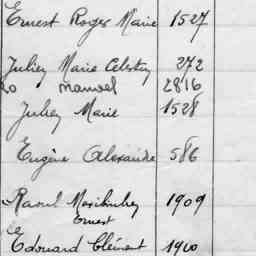 Ernest Roger Marie 1527
Julien Marie Célestin 272
manuel 2816
Julien Marie 1528
Eugène Alexandre 586
Raoul 1909
Ernest
Edouard Clément 1910